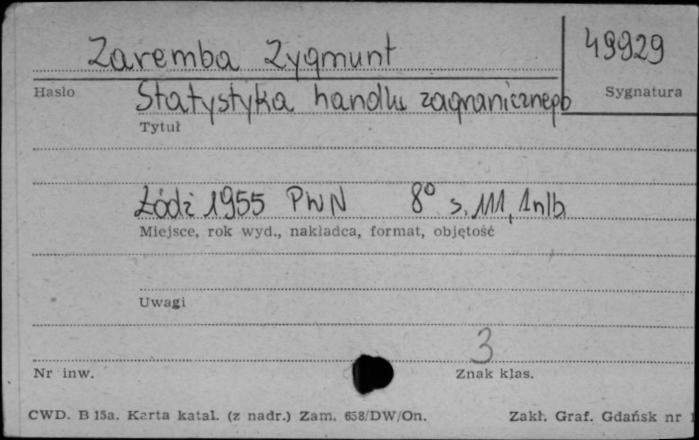 Zaremba Zygmunt 49929
Hasło Sygnatura
Statystyka handlu zagranicznego
Tytuł
Łódź 1955 PWN 8° s. 111, 1nlb
Miejsce, rok wyd., nakładca, format, objętość
Uwagi
3
Nr inw. Znak klas.
CWD. B 15a. Karta katal. (z nadr.) Zam. 658/DW/On. Zakł. Graf. Gdańsk nr 1